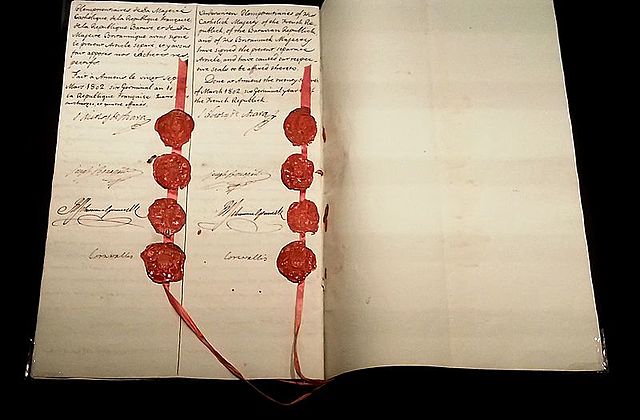 Plenipotentiaires de Sa Majesté
Catholique de la République Française
de la République Batave et de Sa
Majesté Britannique avons signé
le présent Article séparé, et y avons
fait apposer nos cachets respectifs.
Fait à Amiens le vingt sept
Mars 1802. six Germinal an 10
la République Française
J. Nicolas de Azara
Joseph Bonaparte
RJ Schimmelpenninck
Cornwallis
Undersigned Plenipotentiaries of his
Catholick Majesty of the French Re-
publick, of the Batavian Republick
and of his Britannick Majesty
have signed the present separate
Article, and have caused our respec-
tive seals to be affixed thereto.
Done at Amiens the twenty seven
of March 1802. six Germinal year
the French Republick.
J. Nicolas de Azara
Joseph Bonaparte
RJ Schimmelpenninck
Cornwallis